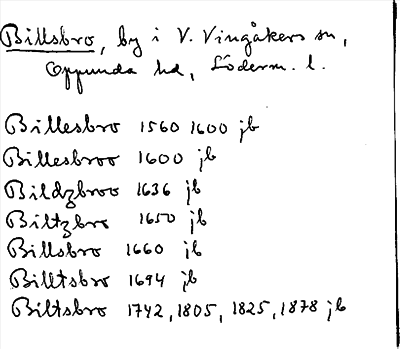 Billsbro, by i V. Vingåkers sn,
Oppunda hd, Söderm. l.
Billesbro 1560 1600 jb
Billesbroo 1600 jb
Bildzbroo 1636 jb
Biltzbro 1650 jb
Billsbro 1660 jb
Billtsbro 1694 jb
Biltsbro 1742, 1805, 1825, 1878 jb